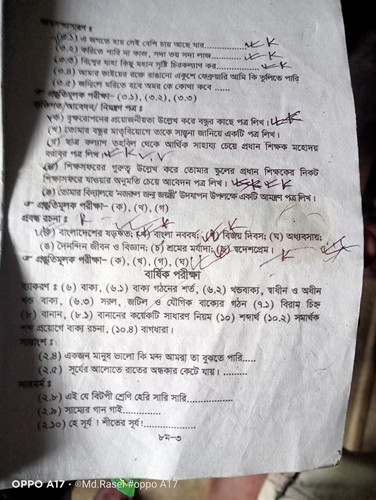 (৩.১) এ জগতে হায় সেই বেশি চায় আছে যার
(৩.২) করিতে পারি না কাজ, সদা ভয় সদা লাজ
(৩.৩) বিশ্বের যাহা কিছু মহান সৃষ্টি চিরকল্যাণ কর
(৩.৪) আমার ভাইয়ের রক্তে রাঙানো একুশে ফেব্রুয়ারি আমি কি ভুলিতে পারি
(৩.৫) জন্মিলে মরিতে হবে অমর কে কোথা কবে ......
প্রস্তুতিমূলক পরীক্ষা– (৩.১), (৩.২), (৩.৩)
আবেদন/ নিমন্ত্রণ পত্র :
(ক) বৃক্ষরোপনের প্রয়োজনীয়তা উল্লেখ করে বন্ধুর কাছে পত্র লিখ।
(খ) তোমার বন্ধুর মাতৃবিয়োগে তাকে সান্ত্বনা জানিয়ে একটি পত্র লিখ।
(গ) ছাত্র কল্যাণ তহবিল থেকে আর্থিক সাহায্য চেয়ে প্রধান শিক্ষক মহোদয়
বরাবর পত্র লিখ।
(ঘ) শিক্ষাসফরের গুরুত্ব উল্লেখ করে তোমার স্কুলের প্রধান শিক্ষকের নিকট
শিক্ষাসফরে যাওয়ার অনুমতি চেয়ে আবেদন পত্র লিখ।
(ঙ) তোমার বিদ্যালয়ে 'নজরুল জন্ম জয়ন্তী' উদযাপন উপলক্ষে একটি আমন্ত্রণ পত্র লিখ।
প্রস্তুতিমূলক পরীক্ষা– (ক), (খ), (গ)
প্রবন্ধ রচনা :
(ক) বাংলাদেশের ষড়ঋতু; (খ) বাংলা নববর্ষ; (গ) বিজয় দিবস; (ঘ) অধ্যবসায়;
(ঙ) দৈনন্দিন জীবন ও বিজ্ঞান; (চ) শ্রমের মর্যাদা; (ছ) স্বদেশপ্রেম।
প্রস্তুতিমূলক পরীক্ষা– (ক), (খ), (গ), (ঘ)
বার্ষিক পরীক্ষা
ব্যাকরণ : (৬) বাক্য, (৬.১) বাক্য গঠনের শর্ত, (৬.২) খন্ডবাক্য, স্বাধীন ও অধীন
খন্ড বাক্য, (৬.৩) সরল, জটিল ও যৌগিক বাক্যের গঠন (৭.১) বিরাম চিহ্ন
(৮) বানান, (৮.১) বানানের কয়েকটি সাধারণ নিয়ম (১০) শব্দার্থ (১০.২) সমার্থক
শব্দ প্রয়োগে বাক্য রচনা, (১০.৪) বাগধারা।
সারাংশ :
(২.৪) একজন মানুষ ভালো কি মন্দ আমরা তা বুঝতে পারি.....
(২.৫) সূর্যের আলোতে রাতের অন্ধকার কেটে যায়। ........
সারমর্ম :
(২.৮) এই যে বিটপী শ্রেণি হেরি সারি সারি...............
(২.৯) সাম্যের গান গাই............
(২.১০) হে সূর্য ! শীতের সূর্য!..............
৮ম–৩
OPPO A17 · ©Md.Rasel #oppo A17